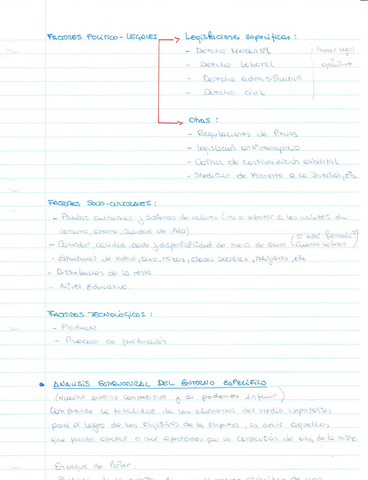 FACTORES POLÍTICO-LEGALES
Legislaciones específicas:
- Derecho Mercantil
- Derecho Laboral
- Derecho administrativo
- Derecho civil
Otras:
- Regulaciones de Precios
- legislación antimonopolio
- Control de contaminación ambiental
- Medidas de Fomento a la Inversión, etc
FACTORES SOCIO-CULTURALES:
- Pautas culturales y sistemas de valores (va a afectar a los hábitos de
consumo, ahorro, calidad de vida)
- Cantidad, calidad, coste y disponibilidad de mano de obra
- Estructuras de edad, sexo, razas, clases sociales, religiones, etc
- Distribución de la renta
- Nivel Educativo.
FACTORES TECNOLÓGICOS:
- Producto
- Proceso de producción
• ANÁLISIS ESTRUCTURAL DEL ENTORNO ESPECÍFICO
(nuestro entorno competitivo y si podemos influir)
Comprende la totalidad de los elementos del medio importantes
para el logro de los objetivos de la Empresa, es decir aquellos
que puedan afectar o ser afectados por la consecución de obj. de la misma
Enfoque de Porter